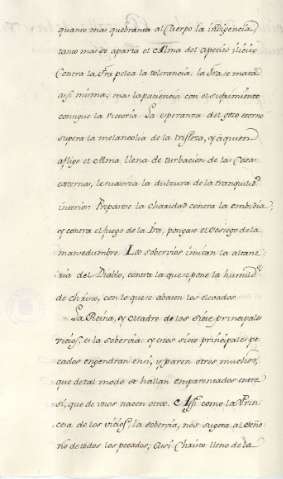 quanto mas quebranta al Cuerpo la indigencia,
tanto mas se aparta el Alma del apetito ilicito
Contra la Ira pelea la tolerancia, la Ira se mata
assi misma; mas la paciencia con el sufrimiento
consigue la victoria. La esperanza del gozo eterno
supera la melancolia de la tristeza, y a quien
aflige el Alma llena de turbacion de las Cosas
externas, le suaviza la dulzura de la tranquilid.
interior. Preparese la Charidad contra la embidia,
y contra el fuego de la Ira, pongase el sosiego de la
mansedumbre. Los sobervios imitan la altane
ria del Diablo, contra la que se pone la humild.
de Christo, con lo que se abaten los elevados.
La Reina, y Madre de los Siete principales
vicios, es la sobervia: y otros siete principales pe
cados engendran en si, y paren otros muchos,
que de tal modo se hallan emparentados entre
si, que de unos nacen otros. Assi como la Prin
cesa de los vicios, la sobervia, nos sugeta al
de todos los pecados; Assi Christo lleno de la